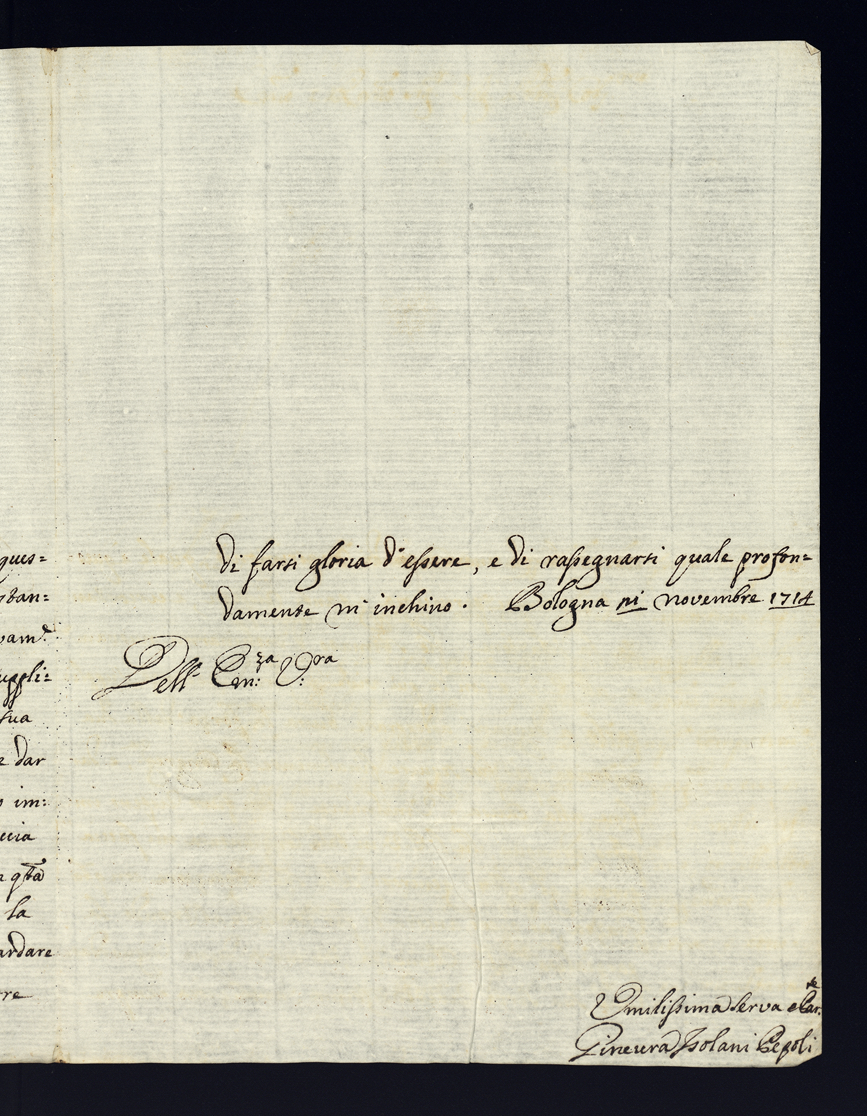 ques=
stan=
vam.e
uppli=
tua
e dar
o im:
ccia
a q.ta
la
ardare
rre
di farsi gloria d'essere, e di rassegnarsi quale profon=
damente m'inchino. Bologna novembre 1714
Dell' Em:za V:ra
Umilissima Serva
Ginevra Isolani Pepoli